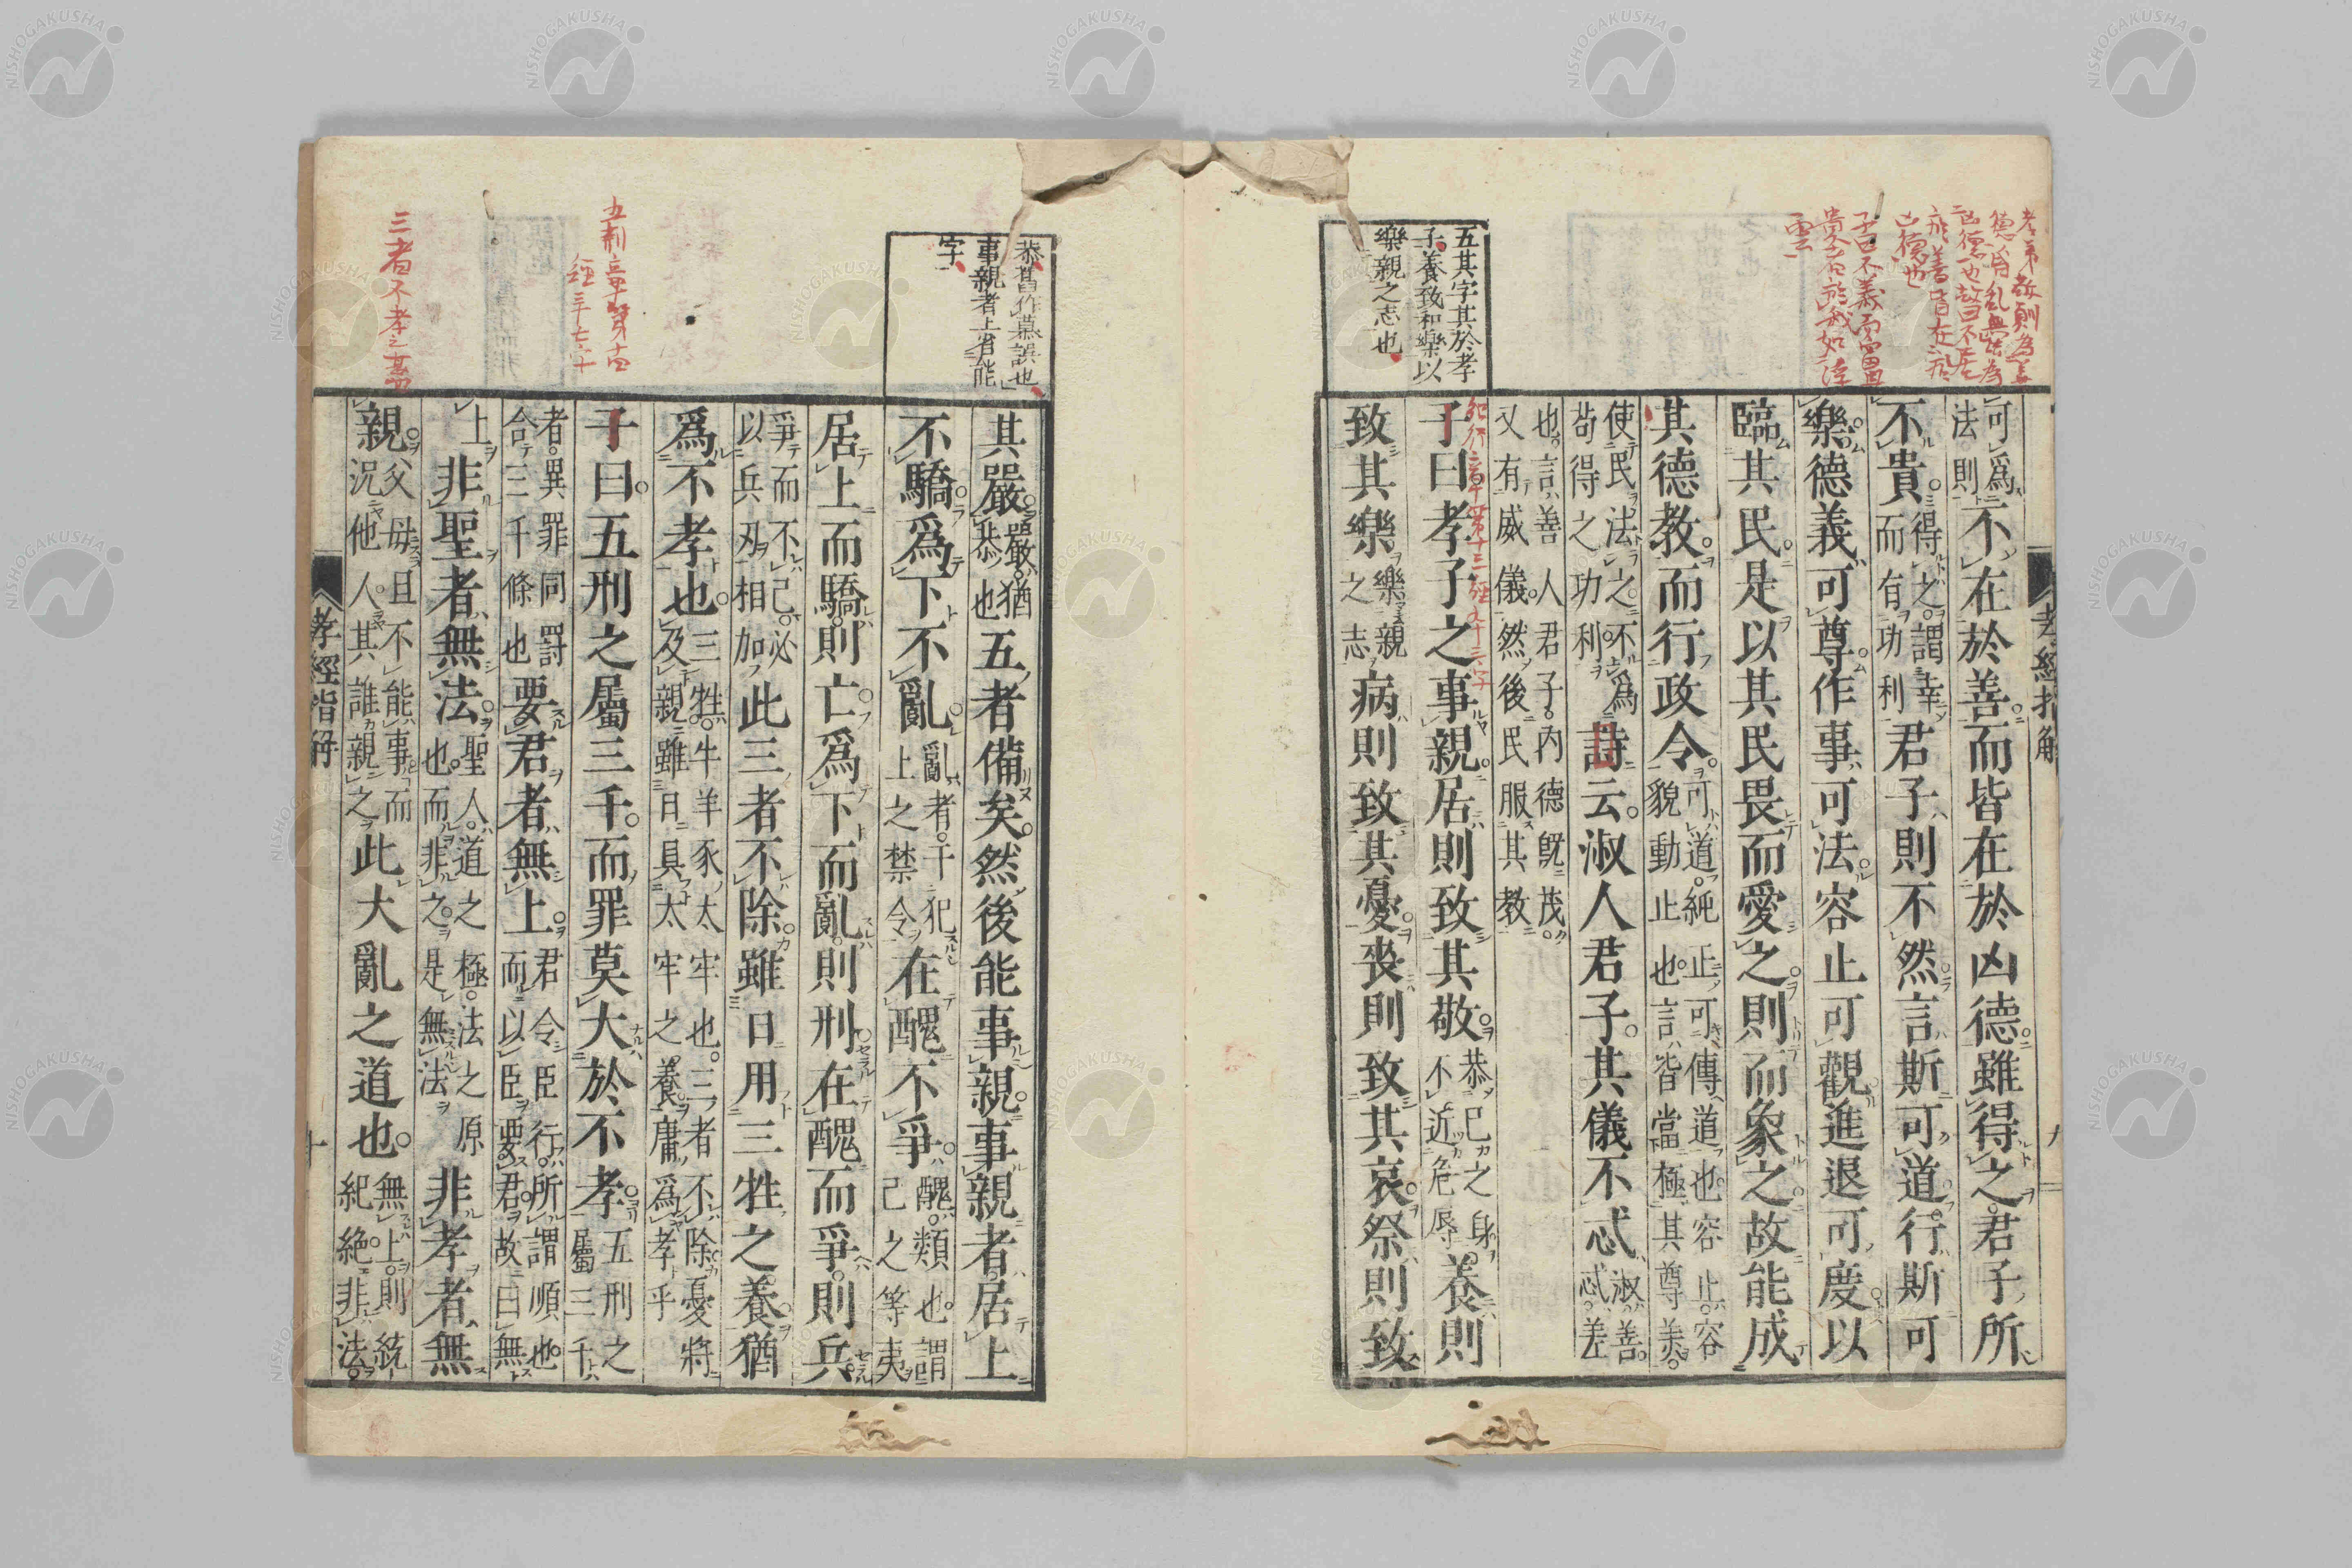 五其字其於孝
子養致和樂以
樂親之志也
可爲
法則
不在於善而皆在於凶德雖得之君子所
不貴
得之謂幸
而有功利
君子則不然言斯可道行斯可
樂德義可尊作事可法容止可觀進退可度以
臨其民是以其民畏而愛之則而象之故能成
其德教而行政令
可道純正可傳道也容止容
貌動止也言皆當極其尊美
使民法之不爲
苟得之功利
詩云淑人君子其儀不忒
淑善
忒差
也言善人君子内德既茂
又有威儀然後民服其教
紀孝行章第十三經九十三字
子曰孝子之事親居則致其敬
恭己之身
不近危辱
養則
致其樂
樂親
之志
病則致其憂喪則致其哀祭則致
孝經指解
九
恭舊作慕誤也
事親者上省能
字
其嚴
嚴猶
恭也
五者備矣然後能事親事親者居上
不驕爲下不亂
亂者干犯
上之禁令
在醜不爭
醜類也謂
己之等夷
居上而驕則亡爲下而亂則刑在醜而爭則兵
爭而不已必
以兵刃相加
此三者不除雖日用三牲之養猶
爲不孝也
三牲牛羊豕太牢也三者不除憂將
及親雖日具太牢之養庸爲孝乎
五刑章第十四
經三十七字
子曰五刑之屬三千而罪莫大於不孝
五刑之
屬三千
者異罪同罰
合三千條也
要君者無上
君令臣行所謂順也
而以臣要君故曰無
上非聖者無法
聖人道之極法之原
也而非之是無法
非孝者無
三者不孝之甚
親
父母且不能事而
況他人其誰親之
此大亂之道也
無上則統
紀絶非法
孝經指解
十